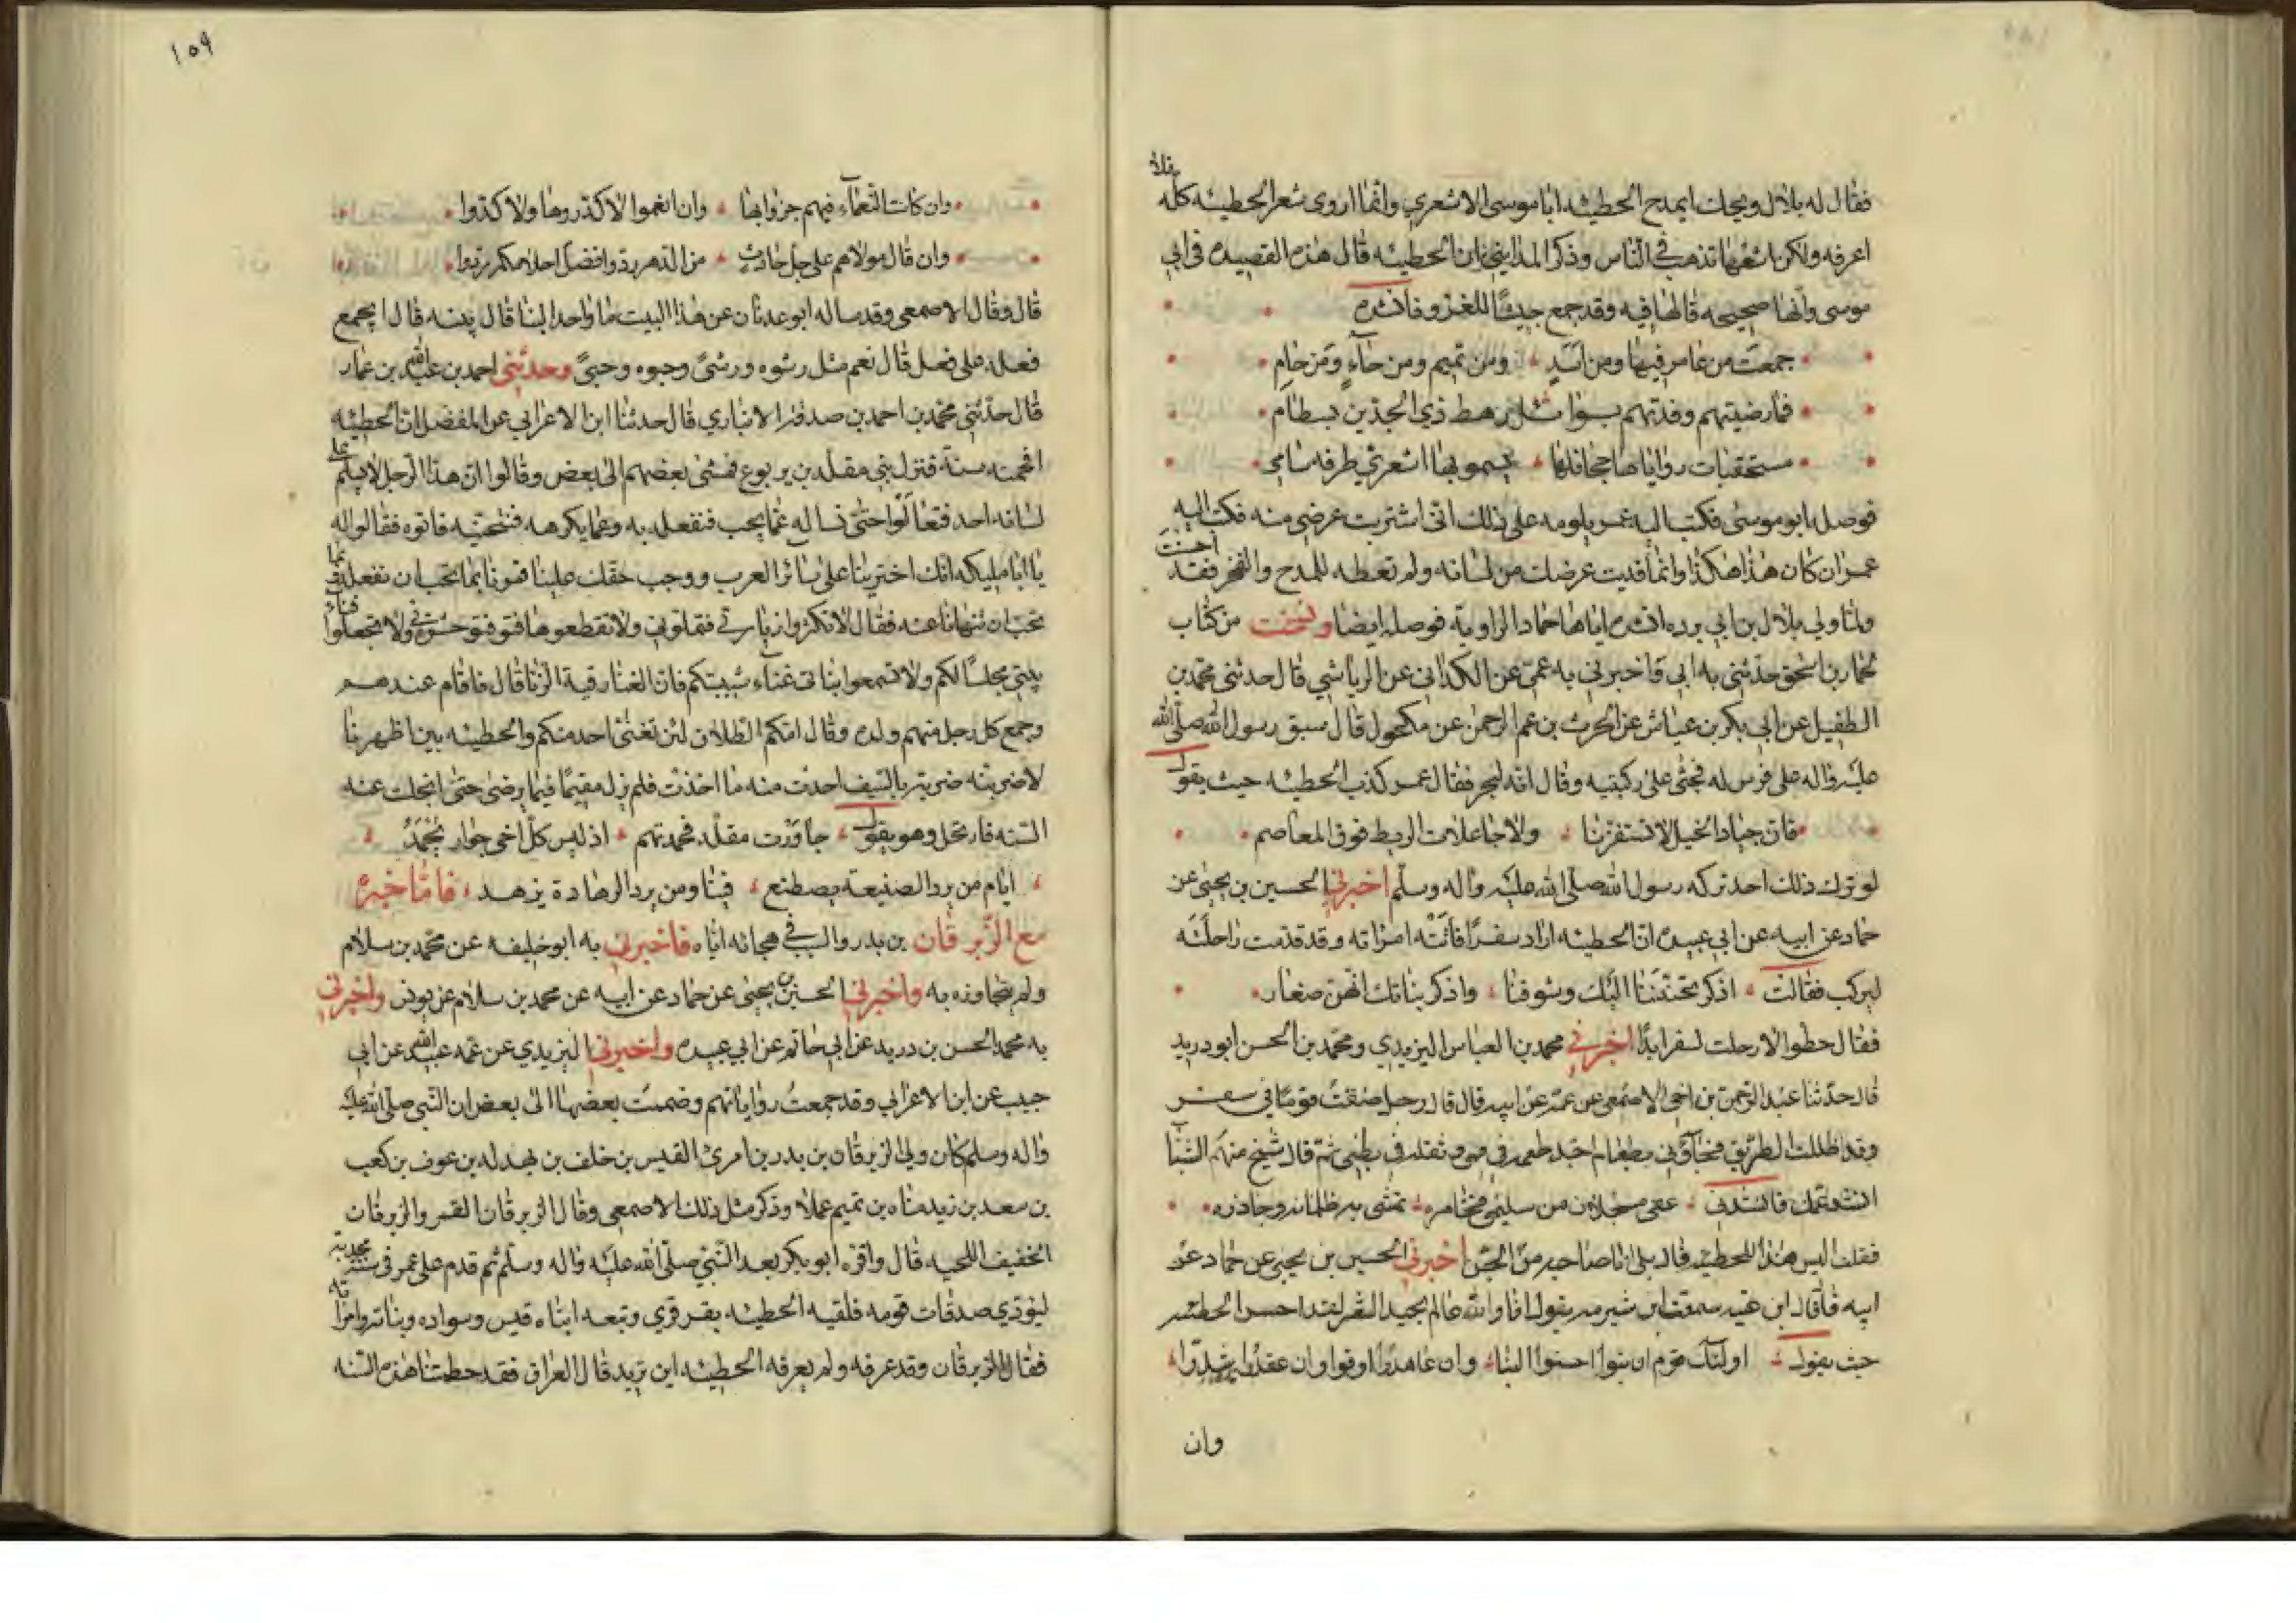 فقال له بلال ويحك ايمدح الحطيئه ابا موسى الاشعري وانما اروى شعر الحطيئه كله فلا
اعرفه ولكن اشعها تذهب في الناس وذكر المدايني ان الحطيئه قال هذه القصيده في ابي
موسى وانها صحيحه قالها فيه وقد جمع جيشا للغزو فانشده
جمعت من عامر فيها ومن اسد ومن تميم ومن حاء ومن حام
فما رضيتهم رهط ذي الجدين بسطام
مستحقبات رواياها جحافلها يسمو بها اشعري طرفه سامي
فوصله ابو موسى فكتب اليه عمر يلومه على ذلك انى اشتريت عرضي منه فكتب اليه
عمر ان كان هذا هكذا وانما فديت عرضك من لسانه ولم تعطه للمدح والفخر فقد احسنت
ولما ولي بلال بن ابي برده انشده اياها حماد الراوية فوصله ايضا ونسخت من كتاب
حدثني به ابي واخبرني به عمي عن الكراني عن الرياشي قال حدثني محمد بن
الطفيل عن ابي بكر بن عياش عن الحرث بن عبد الرحمن عن مكحول قال سبق رسول الله صلى الله
عليه واله على فرس له فجثى على ركبتيه وقال انه لبحر فقال عمر كذب الحطيئه حيث يقول
فان جياد الخيل لا تستفزنا ولا جاعلات الريط فوق المعاصم
لو ترك ذلك احد تركه رسول الله صلى الله عليه واله وسلم اخبرني الحسين بن يحيى عن
حماد عن ابيه عن ابي عبيده ان الحطيئه اراد سفرا فاتته امراته وقد قدمت راحلته
ليركب فقالت اذكر تحننا اليك وشوقنا واذكر بناتك انهن صغار
فقال حطوا لا رحلت لسفر ابدا اخبرني محمد بن العباس اليزيدي ومحمد بن الحسن ابو دريد
قال حدثنا عبد الرحمن بن اخي الاصمعي عن عمه عن ابيه قال قال رجل ضفت قوما في سفر
وقد ظللت الطريق فجاؤني بطعام اجد طعمه في فمي وثقله في بطني ثم قال شيخ منهم لشاب
انشد عمك فانشدني عفى مسحلان من سليمى فحامره تمشى به ظلمانه وجاذره
فقلت اليس هذا للحطيئه قال بلى انا صاحبه من الجن اخبرني الحسين بن يحيى عن حماد عن
ابيه قال قال ابن عيينه سمعت ابن شبرمه يقول انا والله عالم بجيد الشعر لقد احسن الحطيئه
حيث يقول اولئك قوم ان بنوا احسنوا البنا وان عاهدوا اوفوا وان عقدوا شدوا
وان
١٥٩
وان كانت النعماء فيهم جزوا بها وان انعموا لا كدروها ولا كدوا
وان قال مولاهم على جل حادث من الدهر ردوا فضل احلامكم ردوا
قال وقال الاصمعي وقد ساله ابو عدنان عن هذا البيت ما واحد البنا قال بنيه قال ايجمع
فعله على فعل قال نعم مثل رشوه ورشى وحبوه وحبى وحدثني احمد بن عبيد الله بن عمار
قال حدثني محمد بن احمد بن صدقه الانباري قال حدثنا ابن الاعرابي عن المفضل ان الحطيئه
اقحمته سنة فنزل ببني مقلد بن يربوع فمشى بعضهم الى بعض وقالوا ان هذا الرجل لا يسلم على
لسانه احد فتعالوا حتى نساله عما يحب فنفعله به وعما يكرهه فنتجنبه فاتوه فقالوا له
يا ابا مليكه انك اخترتنا على سائر العرب ووجب حقك علينا فمرنا بما تحب ان نفعله وبما
تحب ان ننتهي عنه فقال لا تكثروا زيارتي فتملوني ولا تقطعوها فتوحشوني ولا تجعلوا فناء
بيتي مجلسا لكم ولا تسمعوا بناتي غناء شبيبتكم فان الغنا رقية الزنا قال فاقام عندهم
وجمع كل رجل منهم ولده وقال امكم الطلاق لئن تغنى احد منكم والحطيئه بين اظهرنا
لاضربنه ضربة بالسيف اخذت منه ما اخذت فلم يزل مقيما فيما يرضى حتى انجلت عنه
السنه فارتحل وهو يقول جاورت مقلد فحمدتهم اذ ليس كل اخي جوار يحمد
ايام من يرد الصنيعة يصطنع فينا ومن يرد الزهادة يزهد فاما خبره
مع الزبرقان بن بدر والسبب في هجائه اياه فاخبرني به ابو خليفه عن محمد بن سلام
ولم يتجاوزه به واخبرني الحسين بن يحيى عن حماد عن ابيه عن محمد بن سلام عن يونس واخبرني
به محمد الحسن بن دريد عن ابي حاتم عن ابي عبيده واخبرني اليزيدي عن عمه عبيد الله عن ابي
حبيب عن ابن الاعرابي وقد جمعت رواياتهم وضممت بعضها الى بعض ان النبي صلى الله عليه
واله وسلم كان ولى الزبرقان بن بدر بن امرئ القيس بن خلف بن بهدله بن عوف بن كعب
بن سعد بن زيد مناه بن تميم عملا وذكر مثل ذلك الاصمعي وقال الزبرقان القمر والزبرقان
الخفيف اللحيه قال واقره ابو بكر بعد النبي صلى الله عليه واله وسلم ثم قدم على عمر في سنة مجدبة
ليؤدي صدقات قومه فلقيه الحطيئه بقرقرى وتبعه ابناه قيس وسواده وبناته وامراته
فقال له الزبرقان وقد عرفه ولم يعرفه الحطيئه اين تريد قال العراق فقد حطمتنا هذه السنه